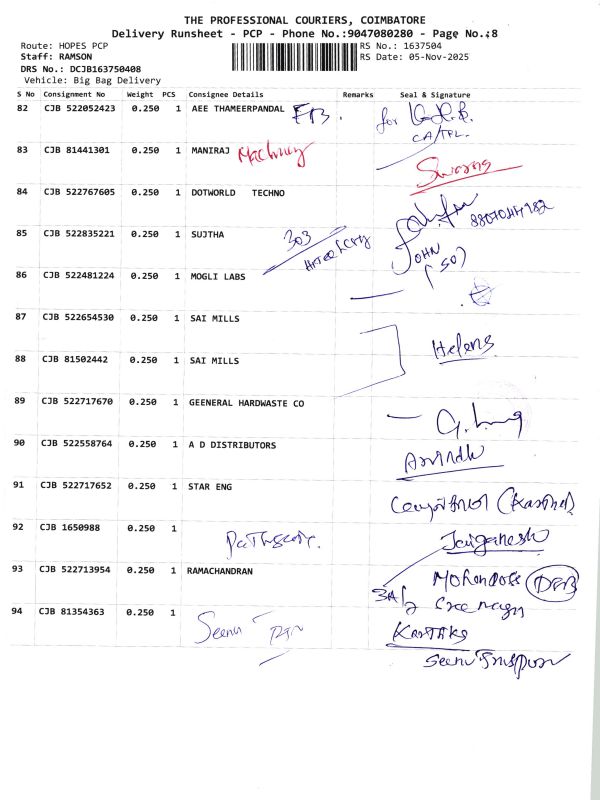 THE PROFESSIONAL COURIERS, COIMBATORE
Delivery Runsheet - PCP - Phone No.:9047080280 - Page No.:8
Route: HOPES PCP
RS No.: 1637504
Staff: RAMSON
RS Date: 05-Nov-2025
DRS No.: DCJB163750408
Vehicle: Big Bag Delivery
S No Consignment No Weight PCS Consignee Details Remarks Seal & Signature
82 CJB 522052423 0.250 1 AEE THAMEERPANDAL for
CA/TPL.
83 CJB 81441301 0.250 1 MANIRAJ
84 CJB 522767605 0.250 1 DOTWORLD TECHNO
85 CJB 522835221 0.250 1 SUJTHA 303 JOHN
(SO)
86 CJB 522481224 0.250 1 MOGLI LABS
87 CJB 522654530 0.250 1 SAI MILLS
Helens
88 CJB 81502442 0.250 1 SAI MILLS
89 CJB 522717670 0.250 1 GEENERAL HARDWASTE CO
90 CJB 522558764 0.250 1 A D DISTRIBUTORS
91 CJB 522717652 0.250 1 STAR ENG
92 CJB 1650988 0.250 1 Jaiganesh
93 CJB 522713954 0.250 1 RAMACHANDRAN
3A/
94 CJB 81354363 0.250 1 Seenu
Seenu